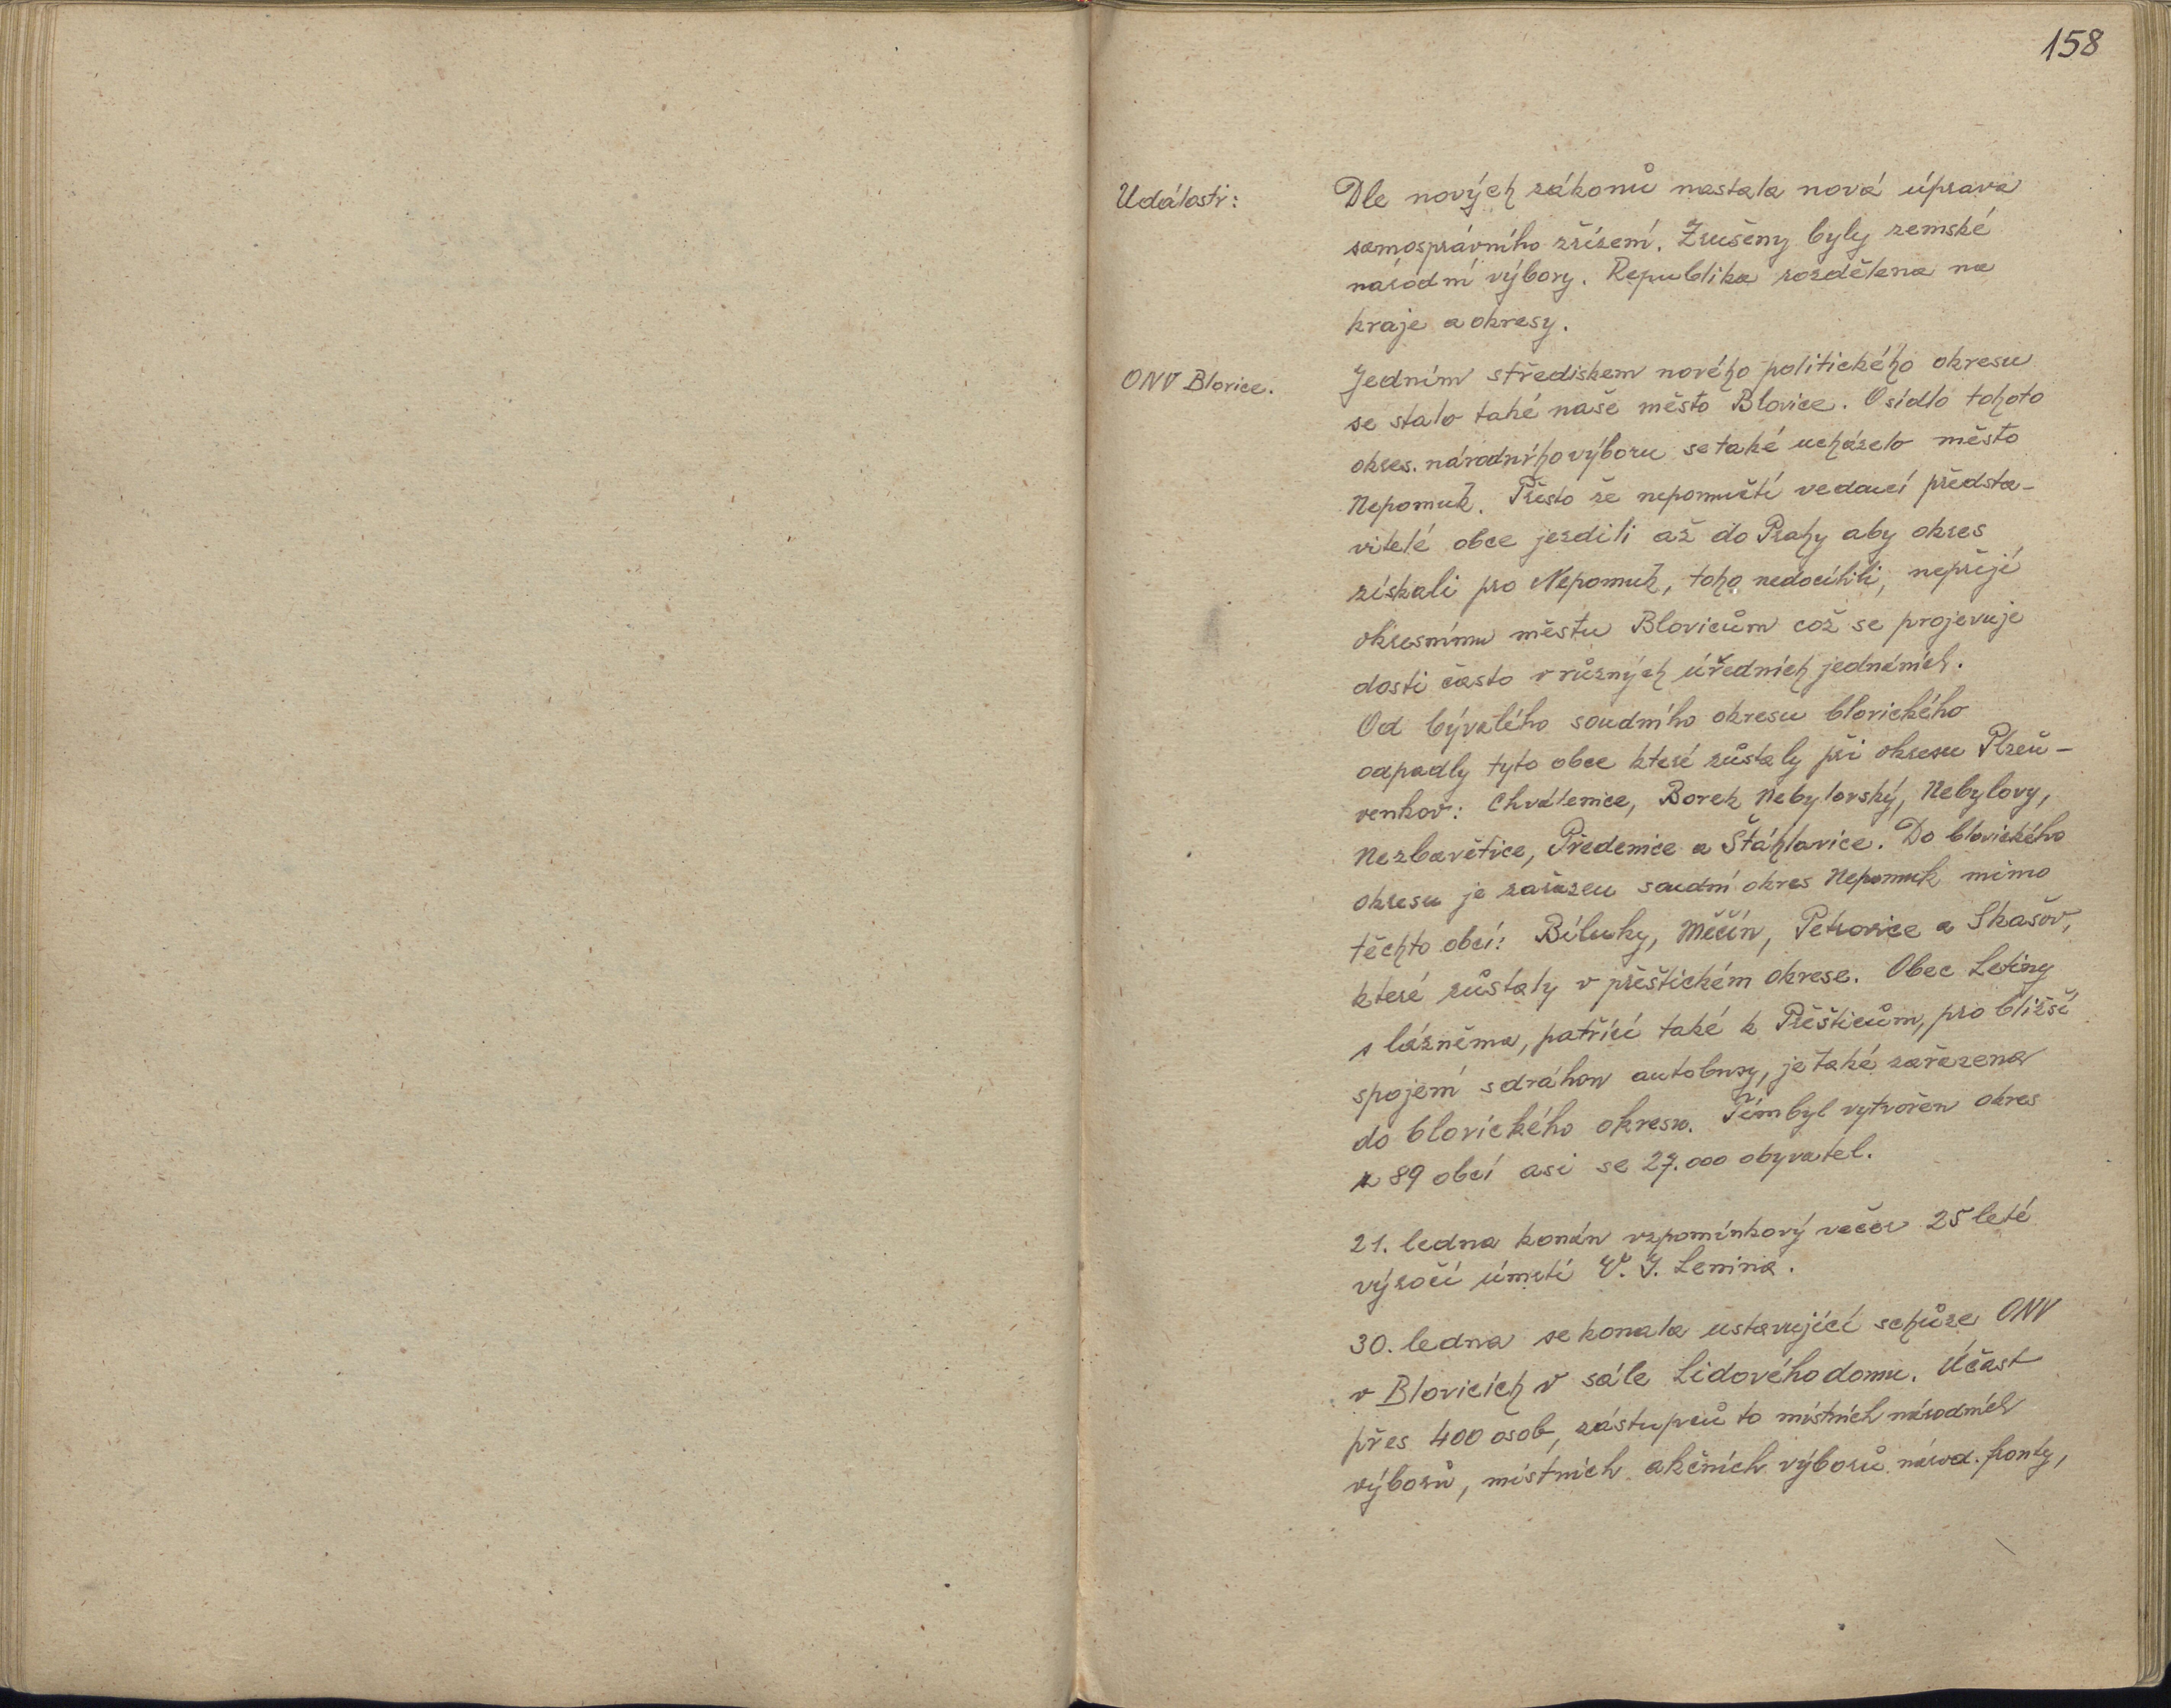 158
Události:
Dle nových zákonů nastala nová úprava
samosprávního zřízení. Zrušeny byly zemské
národní výbory. Republika rozdělena na
kraje a okresy.
ONV Blovice.
Jedním střediskem nového politického okresu
se stalo také naše město Blovice. O sídlo tohoto
okres. národního výboru se také ucházelo město
Nepomuk. Přesto že nepomučtí vedoucí předsta-
vitelé obce jezdili až do Prahy aby okres
získali pro Nepomuk, toho nedocílili, nepřejí
okresnímu městu Blovicům což se projevuje
dosti často v různých úředních jednáních.
Od bývalého soudního okresu blovického
odpadly tyto obce které zůstaly při okresu Plzeň-
venkov: Chválenice, Borek Nebylovský, Nebylovy,
Nezbavětice, Předenice a Štáhlavice. Do blovického
okresu je zařazen soudní okres Nepomuk mimo
těchto obcí: Bíluky, Měčín, Petrovice a Skašov,
které zůstaly v přeštickém okrese. Obec Letiny
s lázněma, patřící také k Přešticům, pro bližší
spojení s dráhou autobusy, je také zařazena
do blovického okresu. Tím byl vytvořen okres
z 89 obcí asi se 27.000 obyvatel.
21. ledna konán vzpomínkový večer 25 leté
výročí úmrtí V. I. Lenina.
30. ledna se konala ustavující schůze ONV
v Blovicích v sále Lidového domu. Účast
přes 400 osob, zástupců to místních národních
výborů, místních akčních výborů národ. fronty,